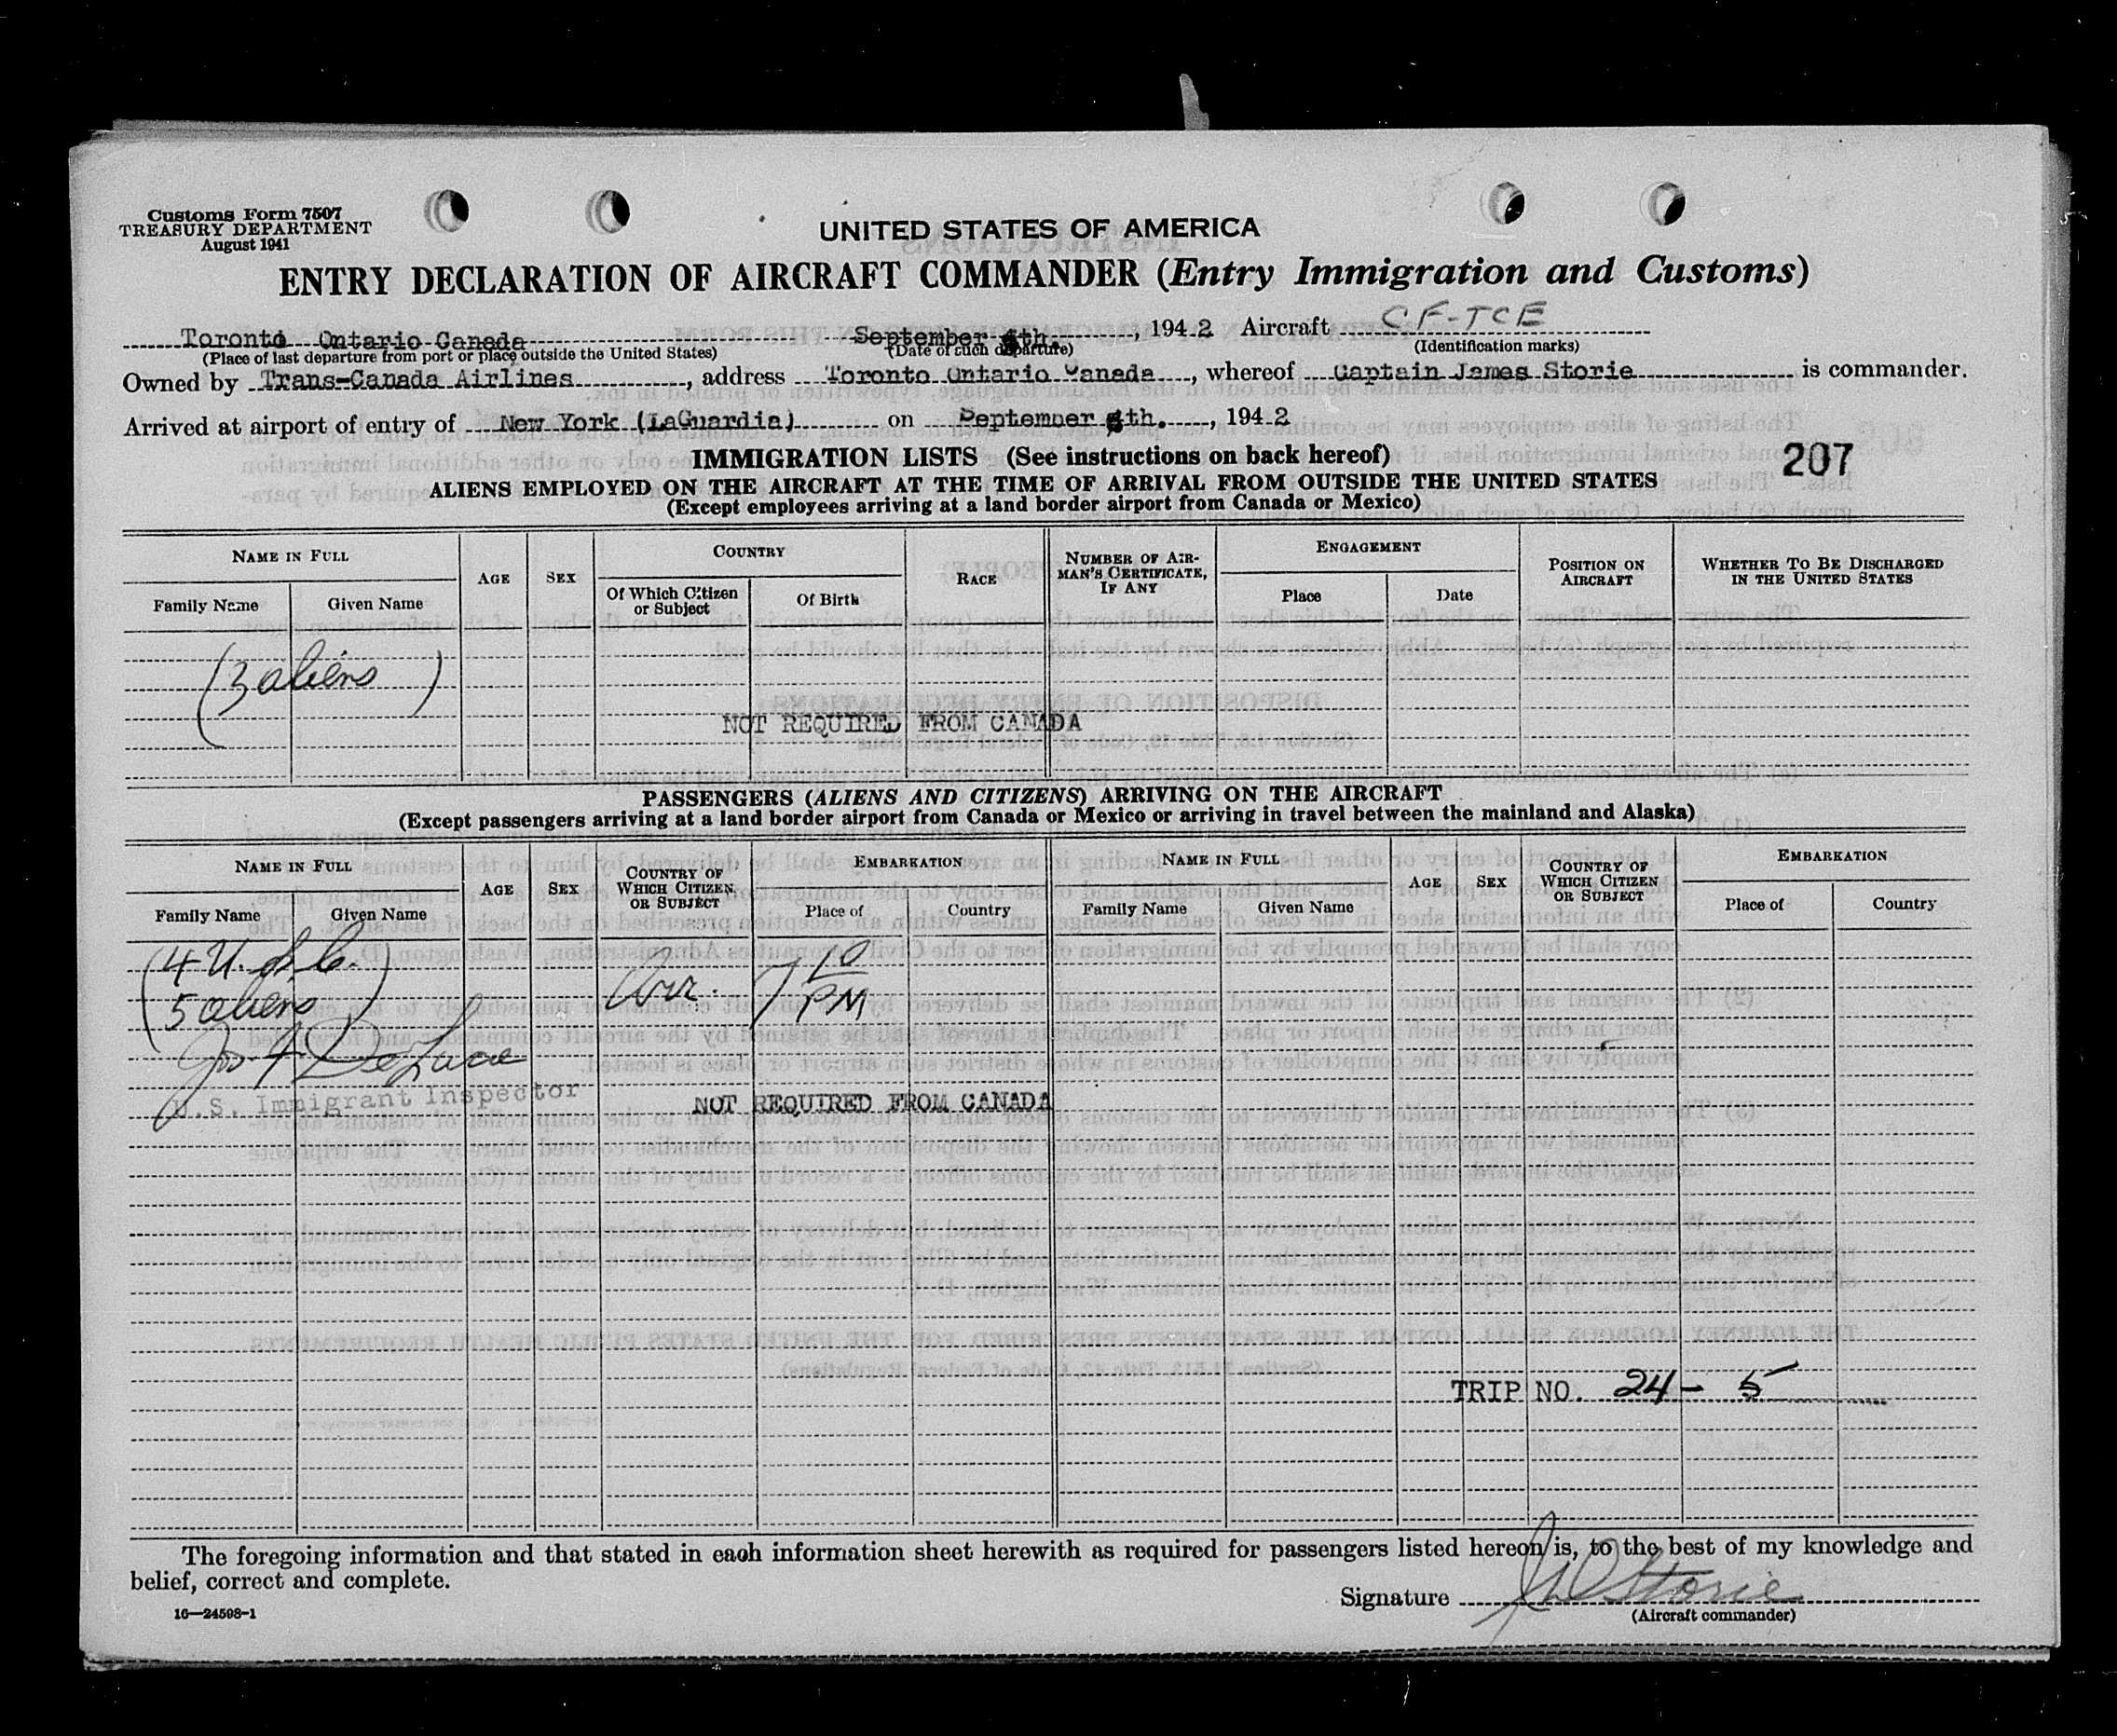 Customs Form 7507
TREASURY DEPARTMENT
August 1941
UNITED STATES OF AMERICA
ENTRY DECLARATION OF AIRCRAFT COMMANDER (Entry Immigration and Customs)
Toronto Ontario Canada September th., 1942 Aircraft CF-TCE
(Place of last departure from port or place outside the United States) (Date of such departure) (Identification marks)
Owned by Trans-Canada Airlines, address Toronto Ontario Canada, whereof Captain James Storie is commander.
Arrived at airport of entry of New York (LaGuardia) on September th., 1942
207
IMMIGRATION LISTS (See instructions on back hereof)
ALIENS EMPLOYED ON THE AIRCRAFT AT THE TIME OF ARRIVAL FROM OUTSIDE THE UNITED STATES
(Except employees arriving at a land border airport from Canada or Mexico)
NAME IN FULL
Family Name Given Name
AGE
SEX
COUNTRY
Of Which Citizen or Subject
Of Birth
RACE
NUMBER OF AIR-
MAN'S CERTIFICATE,
IF ANY
ENGAGEMENT
Place Date
POSITION ON
AIRCRAFT
WHETHER TO BE DISCHARGED
IN THE UNITED STATES
(3 aliens)
NOT REQUIRED FROM CANADA
PASSENGERS (ALIENS AND CITIZENS) ARRIVING ON THE AIRCRAFT
(Except passengers arriving at a land border airport from Canada or Mexico or arriving in travel between the mainland and Alaska)
NAME IN FULL
Family Name Given Name
AGE
SEX
COUNTRY OF
WHICH CITIZEN
OR SUBJECT
EMBARKATION
Place of Country
NAME IN FULL
Family Name Given Name
AGE
SEX
COUNTRY OF
WHICH CITIZEN
OR SUBJECT
EMBARKATION
Place of Country
(4 U.S.C.)
5 aliens
Arr. 7 10 PM
Jos A DeLuca
U.S. Immigrant Inspector
NOT REQUIRED FROM CANADA
TRIP NO. 24 - 5
The foregoing information and that stated in each information sheet herewith as required for passengers listed hereon is, to the best of my knowledge and
belief, correct and complete.
Signature Storie
(Aircraft commander)
16—24598-1